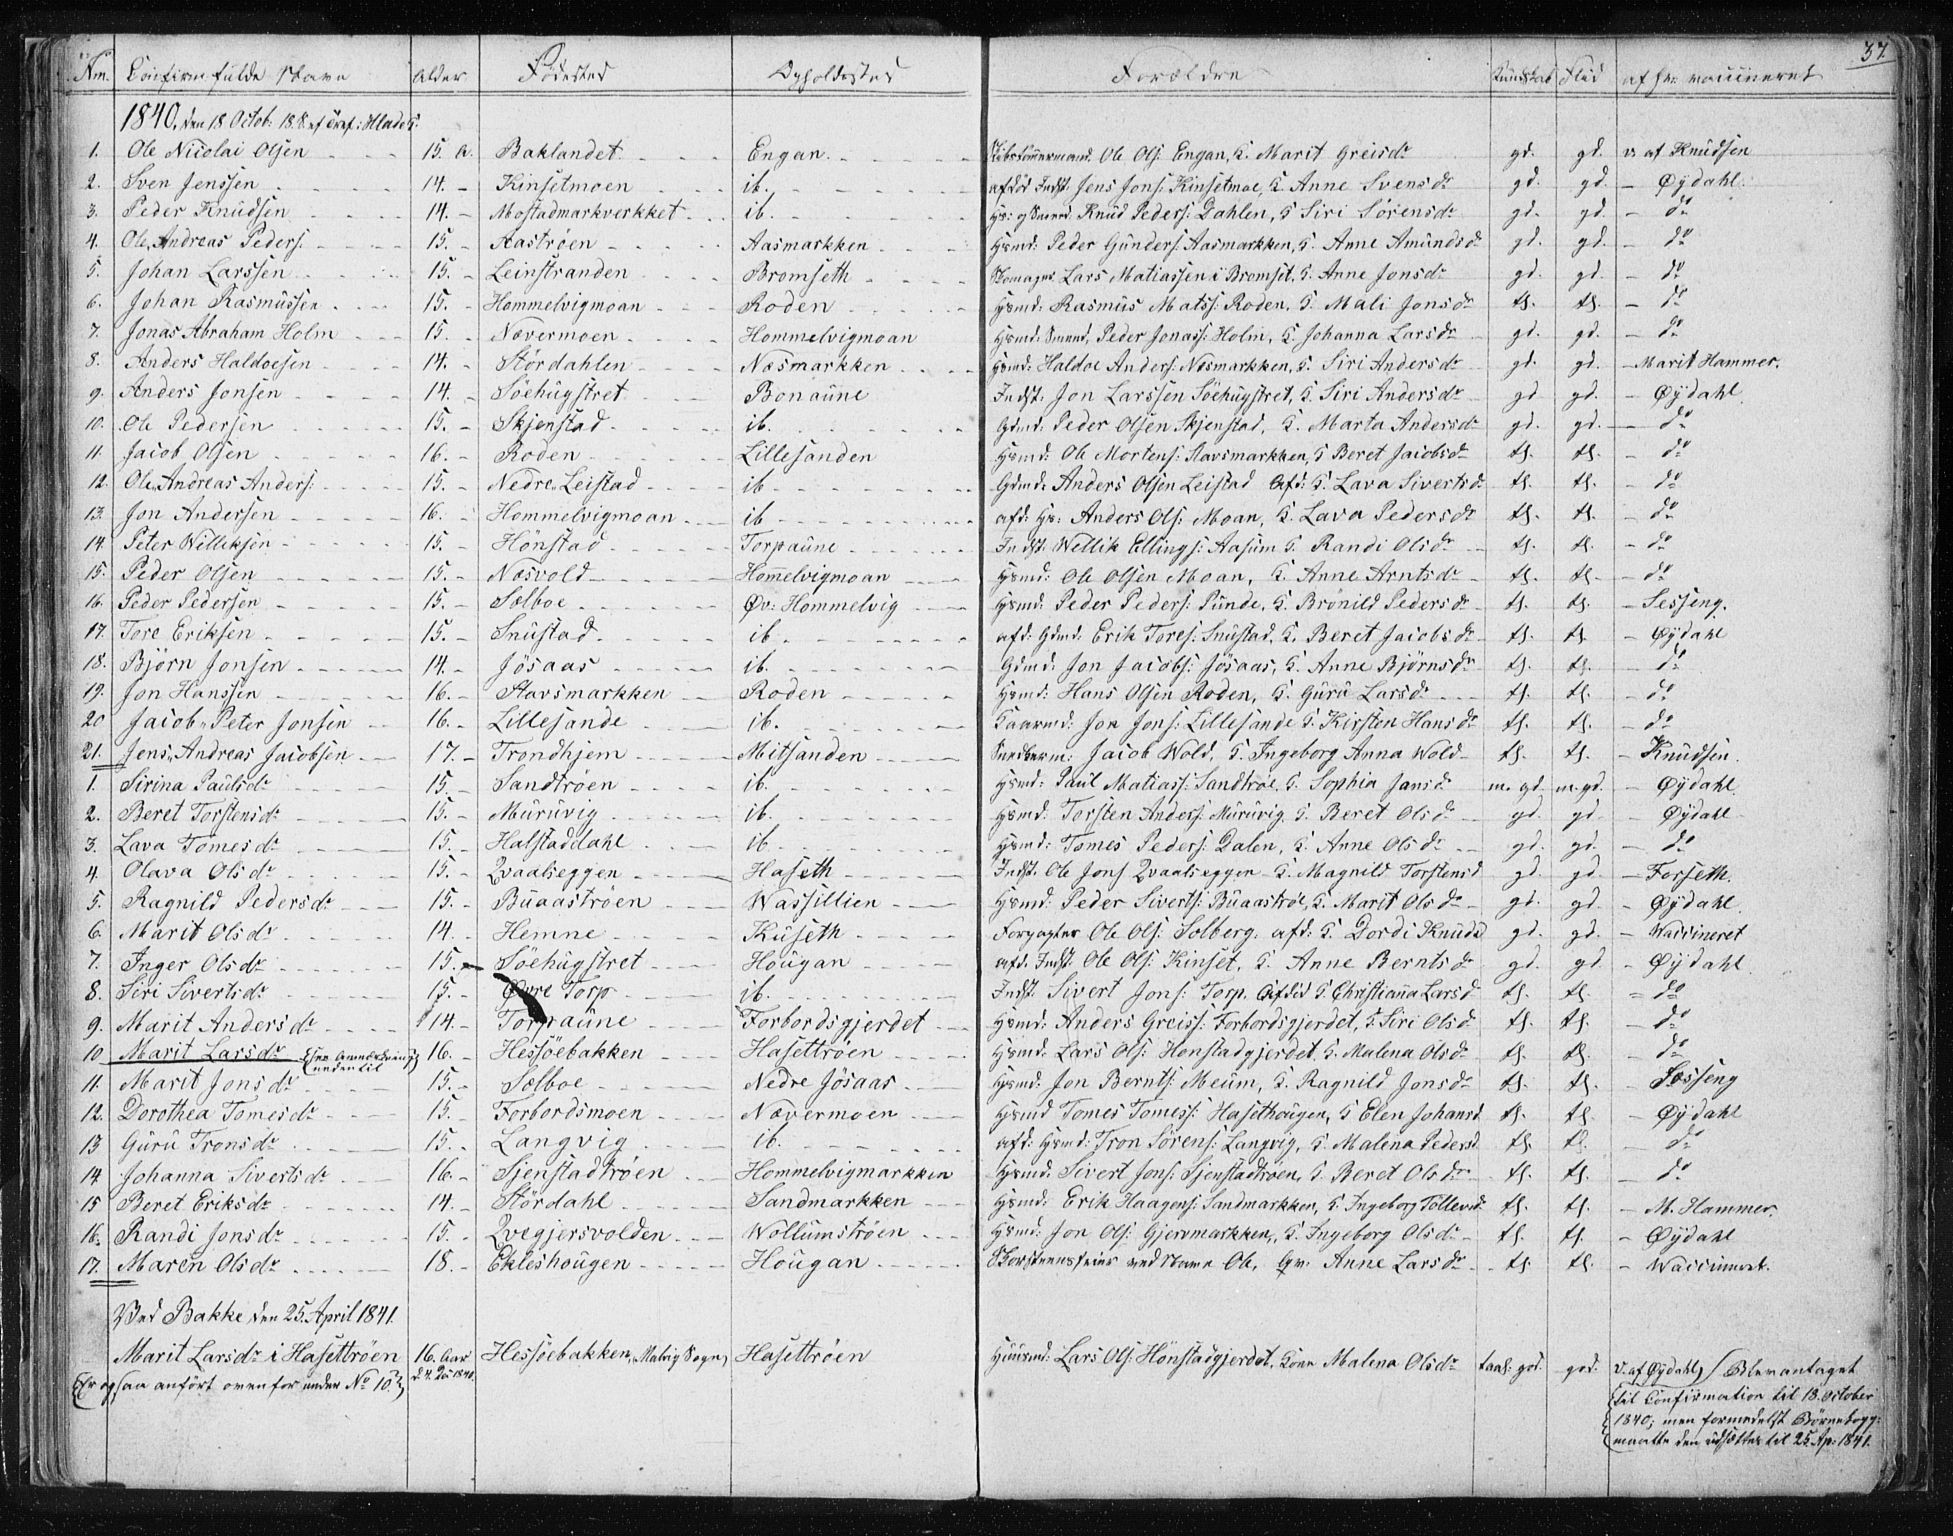 37.
Nm. Confirm: fulde Navn Alder Fødested Opholdssted Forældre Kundskab Flid af hvem vaccineret
1840, den 18 Octob: 18 S. ef Tref: Hlade K.
1. Ole Nicolai Olsen 15 a. Baklandet Engan Skibstømmermand Ole Ols: Engan, K. Marit Greisdr gd. gd. v. af Knudsen
2. Sven Jenssen 14. Kinsetmoen ib. afdød Indst: Jens Jons: Kinsetmoe, K. Anne Svensdr gd. gd. – Øydahl.
3. Peder Knudsen 14. Mostadmarkverkket ib. Hs: og Smed Knud Peders: Dahlen, K. Siri Sørensdr gd. gd. – do
4. Ole Andreas Peders: 15. Aastrøen Aasmarkken Hsmd: Peder Gunders: Aasmarkken, K. Anne Amundsdr gd. gd. – do
5. Johan Larssen 15. Leinstranden Bromseth Skomager Lars Matiassen i Bromset, K. Anne Jonsdr gd. gd. – do
6. Johan Rasmussen 15. Hommelvigmoan Roden Hsmd: Rasmus Matss: Roden, K. Mali Jonsdr tl. tl. – do
7. Jonas Abraham Holm 15. Nævermoen Hommelvigmoan Hsmd: Smed, Peder Jonass: Holm, K. Johanna Larsdr gd. gd. – do
8. Anders Haldoesen 14. Størdahlen Næsmarkken Hsmd: Haldoe Anders: Næsmarkken, K. Siri Andersdr gd. gd. – Marit Hammer.
9. Anders Jonsen 14. Söehugstret Bonaune Indst: Jon Larssen Söehugstret, K. Siri Andersdr gd gd. – Øydahl.
10. Ole Pedersen 15. Skjenstad ib. Gdmd: Peder Olsen Skjenstad, K. Marta Andersdr gd. gd. – do
11. Jacob Olsen 16. Roden Lillesanden Hsmd: Ole Mortens: Stavsmarkken, K Beret Jacobsdr tl. tl. – do
12. Ole Andreas Anders: 15. Nedre Leistad ib Gdmd: Anders Olsen Leistad Afd: K. Lava Sivertsdr tl. tl. – do
13. Jon Andersen 16. Hommelvigmoan ib afd: Hs: Anders Ols: Moan, K. Lava Pedersdr tl. tl. – do
14. Peter Williksen 15. Hönstad Torpaune Indst: Wellik Ellings: Aasum K. Randi Olsdr tl. tl. – do
15. Peder Olsen 15. Næsvold Hommelvigmoan Hsmd: Ole Olsen Moan, K. Anne Arntsdr tl. tl. – do
16. Peder Pedersen 15. Sælboe Øv: Hommelvig Hsmd: Peder Peders: Sunde, K. Brönild Pedersdr tl. tl. – Sesseng.
17. Tore Eriksen 15. Snustad ib. afd: Gdmd: Erik Tores: Snustad, K. Beret Jacobsdr tl. tl. – Øydahl
18. Bjørn Jonsen 14. Jösaas ib. Gdmd: Jon Jacobs: Jösaas, K. Anne Bjørnsdr tl. tl. – do
19. Jon Hanssen 16. Stavsmarkken Roden Hsmd: Hans Olsen Roden, K. Guru Larsdr tl. tl. – do
20 Jacob Peter Jonsen 16. Lillesande ib. Kaarmd: Jon Jons: Lillesande K. Kirsten Hansdr tl. tl. – do
21. Jens Andreas Jacobsen 17. Trondhjem Mitsanden Jacob Wold, K. Ingeborg Anna Wold tl. tl. – Knudsen.
1. Sirina Paulsdr 15. Sandtrøen ib. Hsmd: Paul Matiass: Sandtrøe, K. Sophia Jansdr m. gd. m. gd. – Øydahl.
2. Beret Torstensdr 15. Muruvig ib. Hsmd: Torsten Anders: Muruvig K. Beret Olsdr gd. gd. – Øydahl
3. Lava Tomesdr 15. Halstaddahl ib. Hsmd: Tomes Peders: Dalen, K. Anne Olsdr gd. gd. – do
4. Olava Olsdr 15. Qvaalseggen Haseth Indst: Ole Jons Qvaalseggen K. Magnild Torstensd gd. gd. – Forseth.
5. Ragnild Pedersdr 15. Buaastrøen Wassillien Hsmd: Peder Siverts: Buaastrøe, K. Marit Olsdr gd. gd. – Øydahl.
6. Marit Olsdr 14. Hemne Kuseth Forpagter Ole Ols: Solberg. afd: K. Dordi Knudsd gd. gd. – Waccineret
7. Inger Olsdr 15. Söehugstret Hougan afd. Indst: Ole Ols: Kinset, K. Anne Berntsdr gd. gd. – Øydahl.
8. Siri Sivertsdr 15. Øvre Torp ib. Indst: Sivert Jons: Torp. Afdød K. Christianna Larsd tl. tl. – do
9. Marit Andersdr 14. Torpaune Forbordsgjerdet Hsmd: Anders Greiss: Forbordsgjerdet, K. Siri Olsd tl. tl. – do
10 Marit Larsdr (see Anmærkning nedentil) 16. Hessöebakken Hasettrøen Hsmd: Lars Ols: Hønstadgjerdet, K. Malena Olsdr tl. tl. – do
11. Marit Jonsdr 15. Sælboe Nedre Jösaas Hsmd: Jon Bernts: Meum, K. Ragnild Jonsdr tl. tl. – Sæsseng
12. Dorothea Tomesdr 15. Forbordsmoen Nævermoen Hsmd Tomes Tomess: Hasethougen, K Elen Johansd tl. tl. – Øydahl
13 Guru Tronsdr 15. Langvig ib. afd: Hsmd: Tron Sörens: Langvig, K. Malena Pedersd tl tl. – do
14 Johanna Sivertsdr 16. Sjenstadtrøen Hommelvigmarkken Hsmd: Sivert Jons: Sjenstadtrøen, K. Beret Olsdr tl. tl. – do
15 Beret Eriksdr 14. Størdahl Sandmarkken Hsmd: Erik Haagens: Sandmarkken, K. Ingeborg Tollevsd tl. tl. – M. Hammer.
16. Randi Jonsdr 15. Qvegjersvolden Wollumstrøen Hsmd: Jon Ols: Gjervmarkken, K. Ingeborg Olsdr tl. tl. – Øydahl
17. Maren Olsdr 18. Ekleshougen Hougan Skorsteensfeier ved Navn Ole, Qv: Anne Larsdr tl. tl. – Waccineret.
Ved Bakke den 25. April 1841.
Marit Larsdr i Hasettrøen 16. Aar Hessöebakken, Malvig Sogn, Hasettrøen Huusmd: Lars Ols: Hönstadgjerdet, Kone Malena Olsdr taal: god. god. V. af Øydahl) (Blev antaget
(Er og saa anfört ovenfor under No 10.) til Confirmation til 18. October
1840; men formedelst Börnekopp:
maatte den udsættes til 25. Ap: 1841.